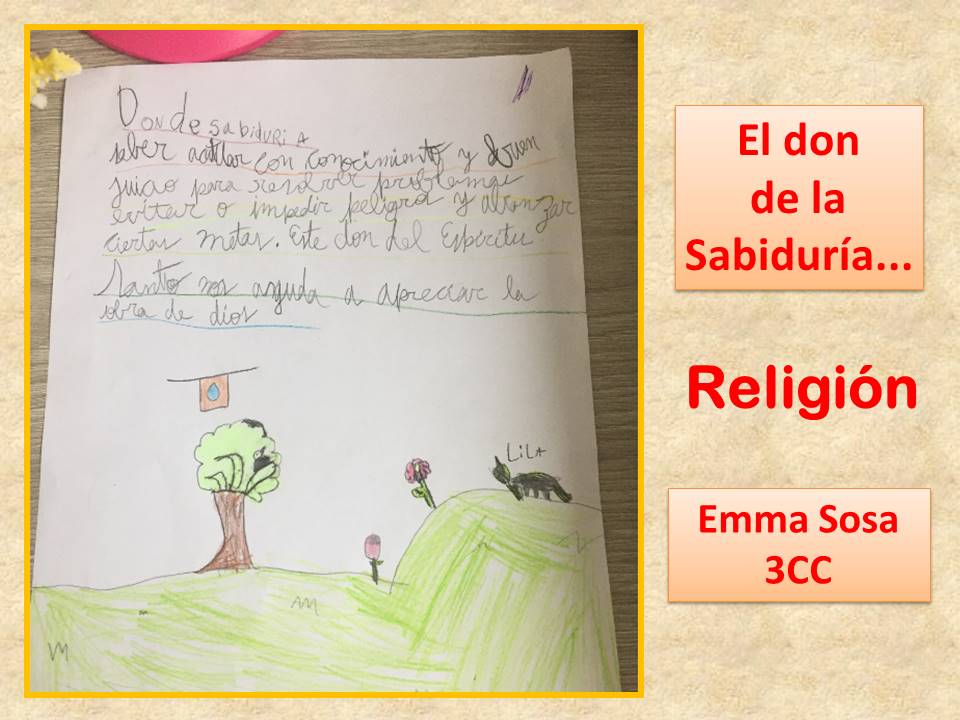 Don de sabiduriA
saber actuar con conocimiento y buen
juicio para resolver problemas
evitar o impedir peligro y alcanzar
ciertas metas. Este don del Espíritu
Santo nos ayuda a apreciar la
obra de dios
LiLA
El don
de la
Sabiduría...
Religión
Emma Sosa
3CC